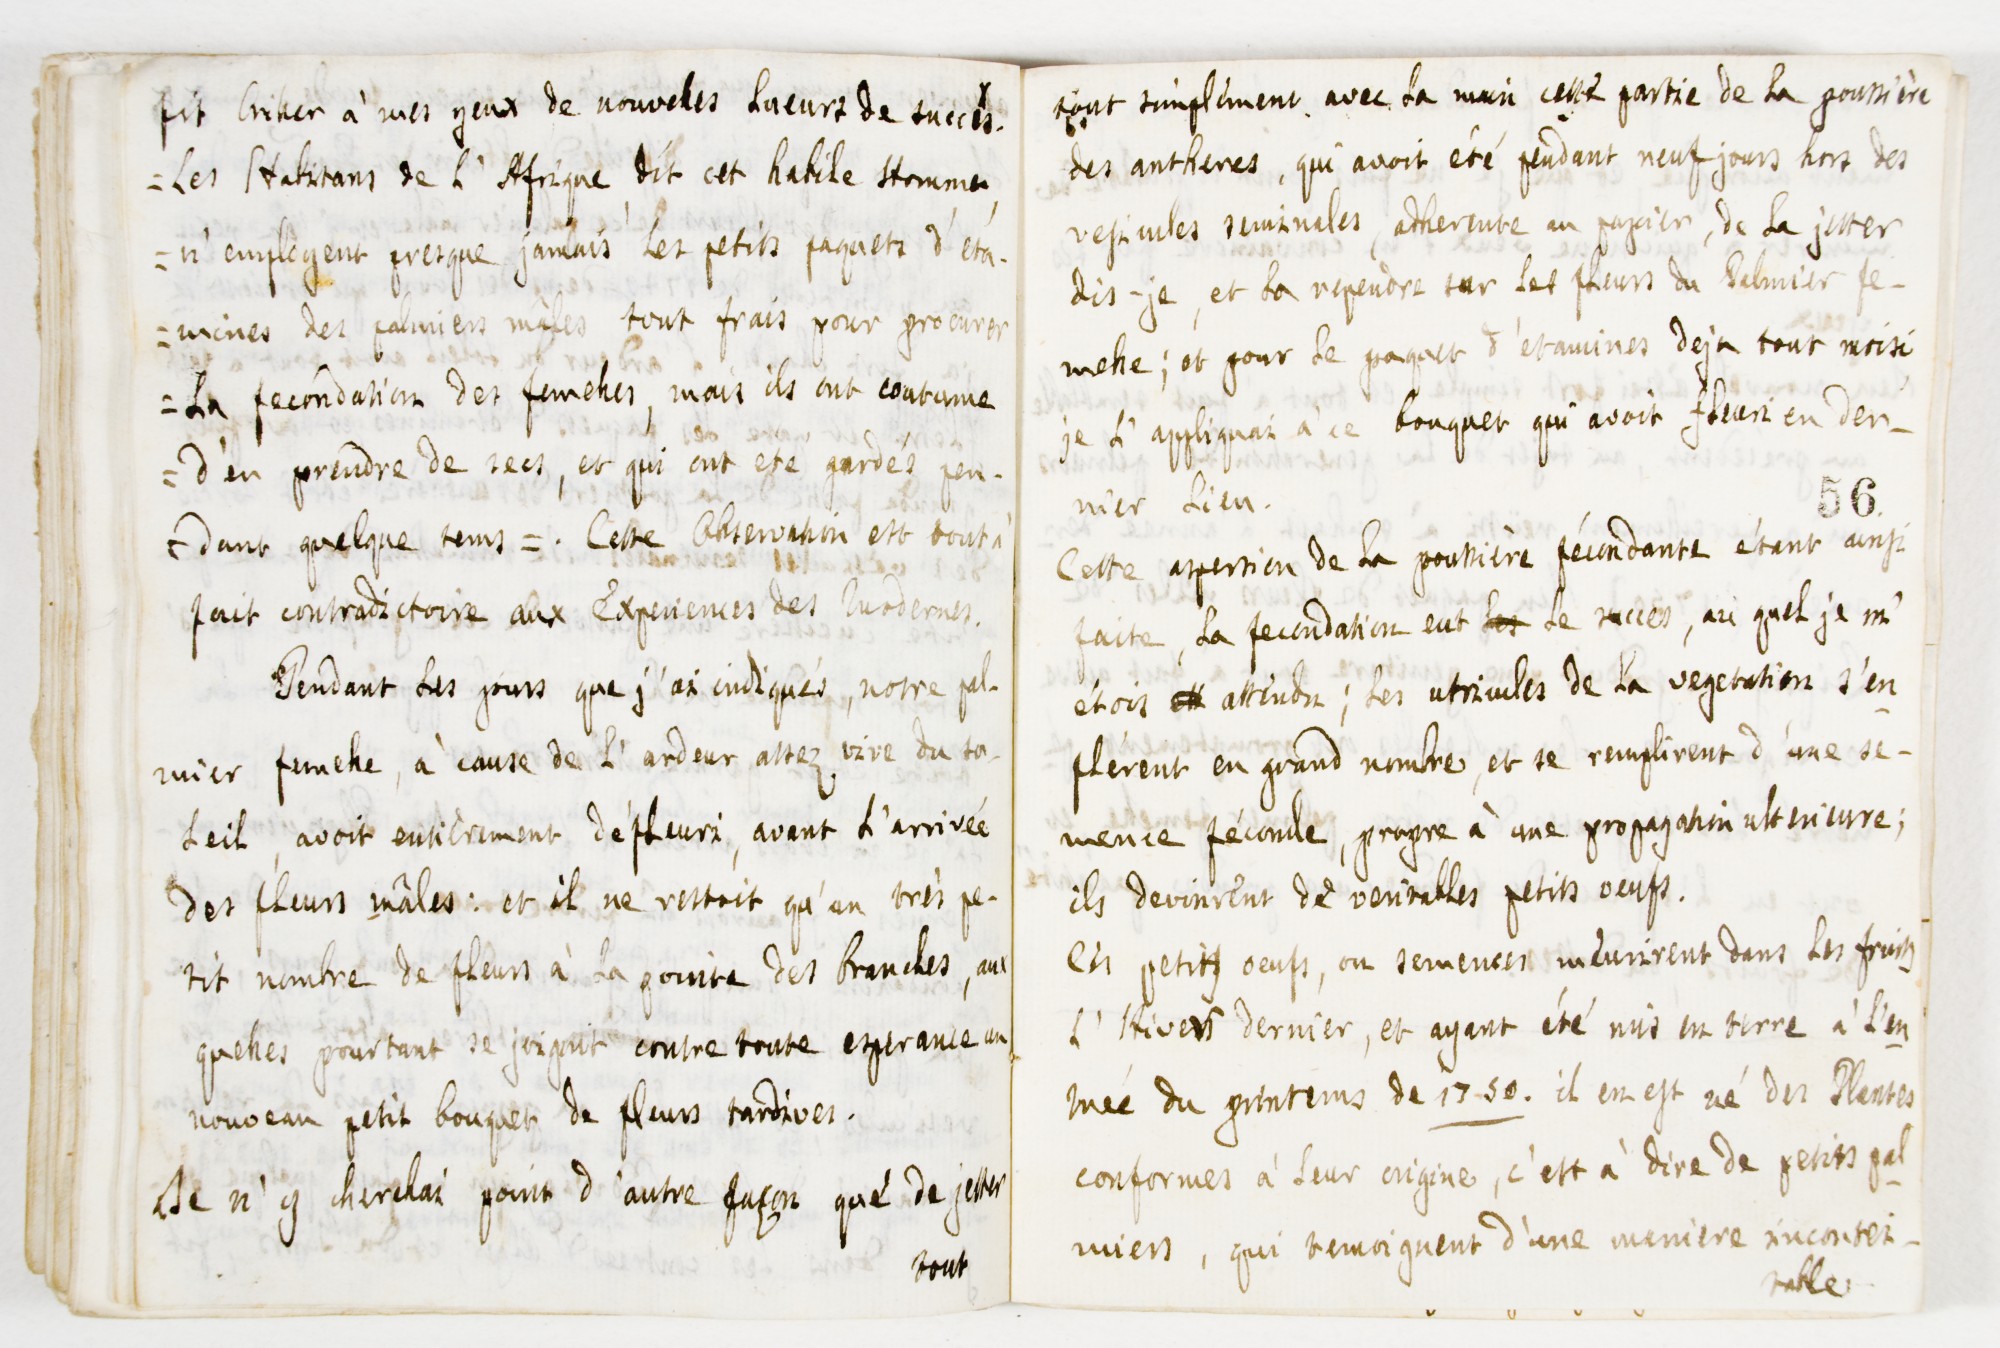 fit briller à mes yeux de nouvelles lueurs de succès.
=Les Habitans de l'Afrique dit cet habile Homme,
=n'employent presque jamais les petits paquets d'éta-
=mines des palmiers mâles tout frais pour procurer
=la fecondation des femelles, mais ils ont coutume
=d'en prendre de secs, et qui ont eté gardés pen-
=dant quelque tems =. Cette Observation est tout à
fait contradictoire aux Experiences des Modernes.
Pendant les jours que j'ai indiqués, notre pal-
mier femelle, à cause de l'ardeur assez vive du so-
leil, avoit entièrement défleuri, avant l'arrivée
des fleurs mâles: et il ne restoit qu'un très pe-
tit nombre de fleurs à la pointe des branches, aux
quelles pourtant se joignit contre toute esperance un
nouveau petit bouquet de fleurs tardives.
Je n'y cherchai point d'autre façon que de jetter
tout
tout simplement avec la main cette partie de la poussière
des antheres, qui avoit été pendant neuf jours hors des
vesicules seminales, adherente au papier, de la jetter
dis-je, et la rependre sur les fleurs du Palmier fe-
melle; et pour le paquet d'étamines deja tout moisi,
je l'appliquai à ce bouquet qui avoit fleuri en der-
nier lieu.
56
Cette aspersion de la poussière fécondante étant ainsi
faite, la fecondation eut les le succès, au quel je m'
étois att attendu; les utricules de la vegetation s'en
flérent en grand nombre, et se remplirent d'une se-
mence féconde, propre à une propagation ulterieure;
ils devinrent de veritables petits oeufs.
Ces petits oeufs, ou semences meurirent dans les fruits
l'Hivers dernier, et ayant été mis en terre à l'en
trée du printems de 1750. il en est né des Plantes
conformes à leur origine, c'est à dire de petits pal
miers, qui temoignent d'une maniere incontes-
table